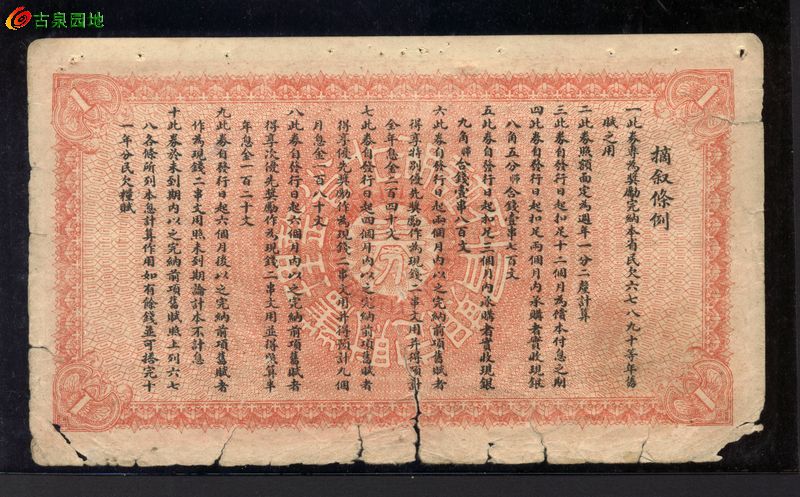 古泉园地
摘叙條例
一此券專為獎勵完納本省民欠六七八九十等年舊
賦之用
二此券照額面定為週年一分二釐計算
三此券自發行日起扣足十二個月為償本付息之期
四此券自發行日起扣足兩個月內承購者實收現銀
八角五分節合錢壹串七百文
五此券自發行日起扣足三個月內承購者實收現銀
九角節合錢壹串八百文
六此券自發行日起兩個月內以之完納前項舊賦者
得享特別優先獎勵作為現錢二串文用并得預計
全年息金二百四十文
七此券自發行日起四個月內以之完納前項舊賦者
得享優先獎勵作為現錢二串文用并得預計九個
月息金一百八十文
八此券自發行日起六個月內以之完納前項舊賦者
得享次優先獎勵作為現錢二串文用並得嘆算半
年息金一百二十文
九此券自發行日起六個月後以之完納前項舊賦者
作為現錢二串文用照未到期論計本不計息
十此券於未到期內以之完納前項舊賦照上列六七
八各條所列本息計算作用如有餘錢並可搭完十
一年分民欠糧賦
1
1
1
1